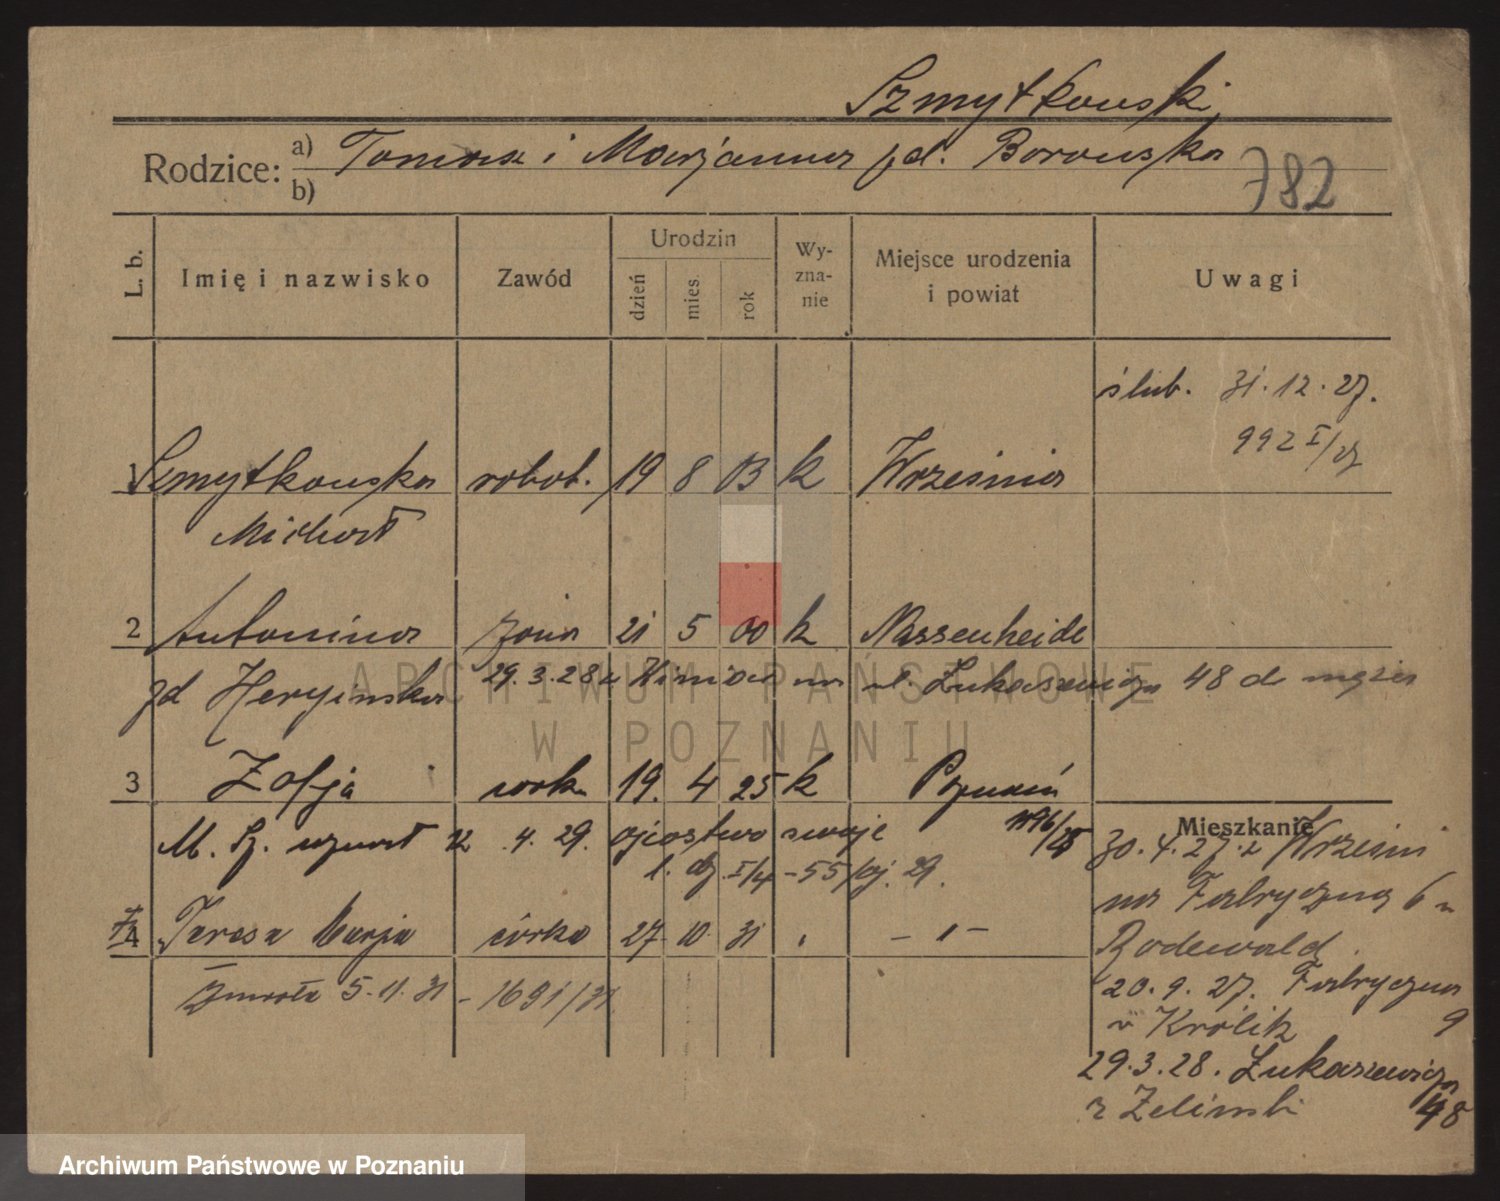 Szmytkowski
Rodzice: a) Tomasz i Marjanna zd. Borowska
b)
782
L. b. Imię i nazwisko Zawód Urodzin dzień mies. rok Wy-zna-nie Miejsce urodzenia i powiat Uwagi
ślub. 31.12.27.
992 I/27
1 Szmytkowska robot. 19 8 03 k Września
Michał
2 Antonina żona 21 5 00 k Nassenheide
zd Heryinska 29.3.28 z Winiar na ul. Łukaszewicza 48 do męża
ARCHIWUM PAŃSTWOWE
W POZNANIU
3 Zofja córka 19. 4 25 k Poznań
M. Sz. uznał 12 .4. 29. ojcostwo swoje
l. dz. I/4 - 55/oj. 29.
Mieszkanie
30.4.27. z Wrześni
na Fabryczną 6 u
Rodewald
4 Teresa Marja córka 27 10 31 - " -
zmarła 5.11.31 - 1691/31
20.9.27. Fabryczna 9
u Królik
29.3.28. Łukaszewicza 48
Archiwum Państwowe w Poznaniu